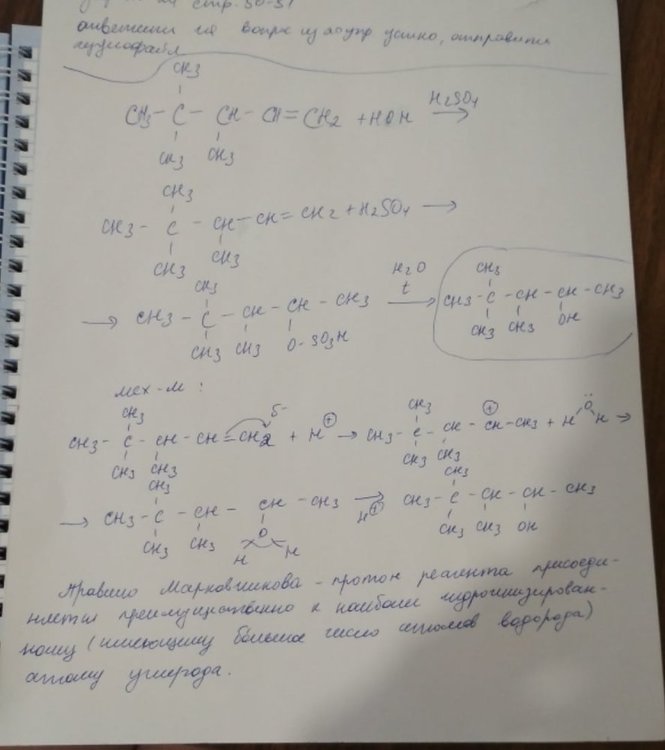 на стр. 50-51
ответить на вопр из упр устно, отправить
аудиофайл
CH3
CH3 - C - CH - CH = CH2 + HOH H2SO4 →
CH3 CH3
CH3
CH3 - C - CH - CH = CH2 + H2SO4 →
CH3 CH3
CH3
→ CH3 - C - CH - CH - CH3 H2O t →
CH3 CH3 O-SO3H
CH3
CH3 - C - CH - CH - CH3
CH3 CH3 OH
мех-м:
CH3 δ-
CH3 - C - CH - CH = CH2 + H⊕ →
CH3 CH3
CH3 ⊕
CH3 - C - CH - CH - CH3 + H O H →
CH3 CH3
CH3
→ CH3 - C - CH - CH - CH3 → H⊕
CH3 CH3 O
H H
CH3
CH3 - C - CH - CH - CH3
CH3 CH3 OH
Правило Марковникова - протон реагента присоеди-
няется преимущественно к наиболее гидрогенизирован-
ному (имеющему большее число атомов водорода)
атому углерода.